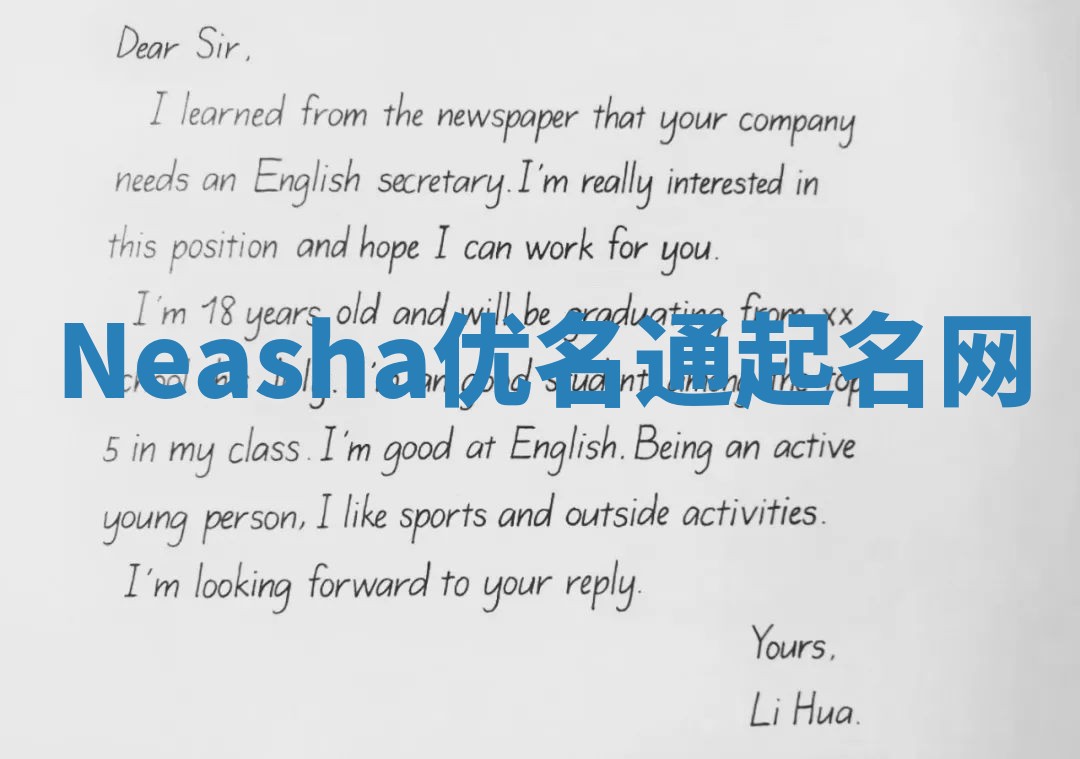 Dear Sir,
I learned from the newspaper that your company
needs an English secretary. I'm really interested in
this position and hope I can work for you.
I'm 18 years old and will be graduating from xx
Neasha优名通起名网
5 in my class. I'm good at English. Being an active
young person, I like sports and outside activities.
I'm looking forward to your reply.
Yours,
Li Hua.